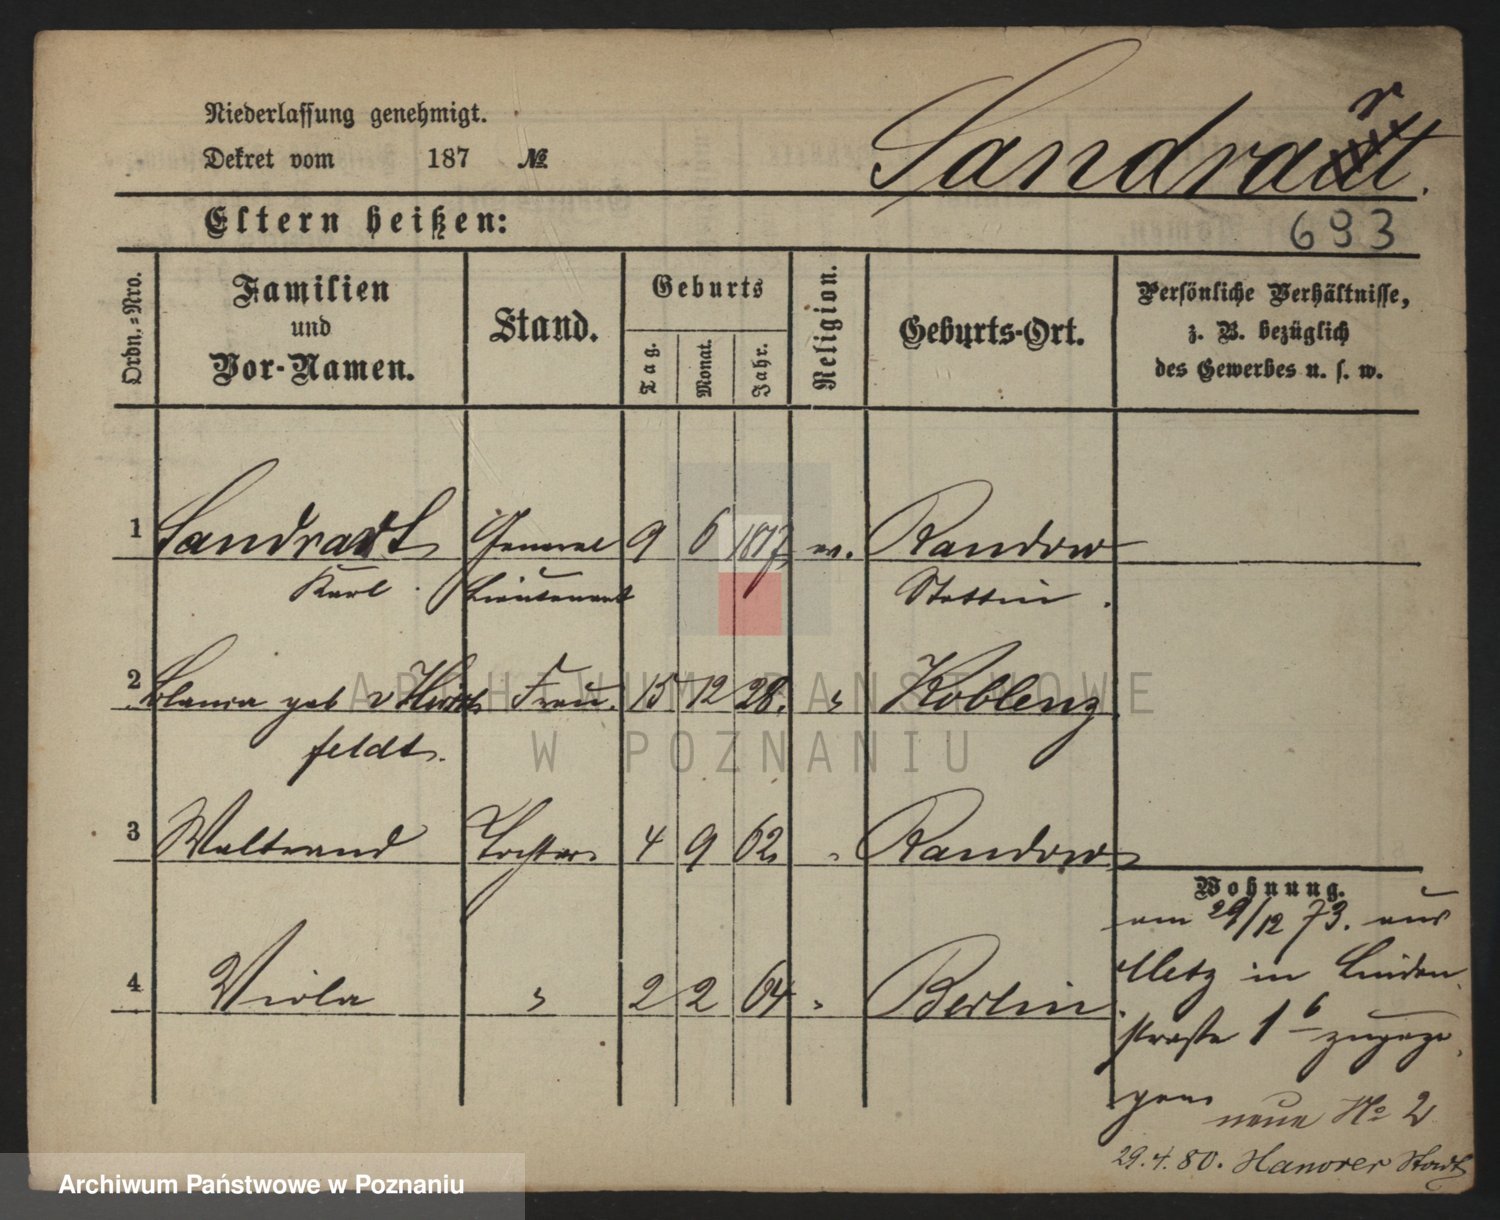 Niederlassung genehmigt.
Dekret vom 187 №
Sandrart.
Eltern heißen:
693
Ordn.-Nro.
Familien und Vor-Namen.
Stand.
Geburts
Tag.
Monat.
Jahr.
Religion.
Geburts-Ort.
Persönliche Verhältnisse,
z. B. bezüglich
des Gewerbes u. s. w.
1 Sandrart General 9 6 1817 ev. Randow
Karl Lieutenant Stettin.
2 geb v Hirsch Frau. 15 12 28. " Koblenz
feldt.
3 Waltraud Tochter 4 9 62 " Randow
4 Viola " 2 2 64 " Berlin
Wohnung.
am 29/12 73. aus
Metz in Linden
straße 1 b zugezo
gen neue No 2
29.4.80. Hanover Stadt
ARCHIWUM PAŃSTWOWE
W POZNANIU
Archiwum Państwowe w Poznaniu